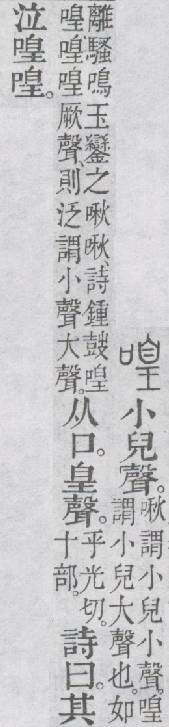 喤 小兒聲。
啾謂小兒小聲。喤
謂小兒大聲也。如
離騷鳴玉鑾之啾啾、詩鍾鼓喤
喤喤喤厥聲、則泛謂小聲大聲。
从口。皇聲。
乎光切。
十部。
詩曰。其
泣喤喤。